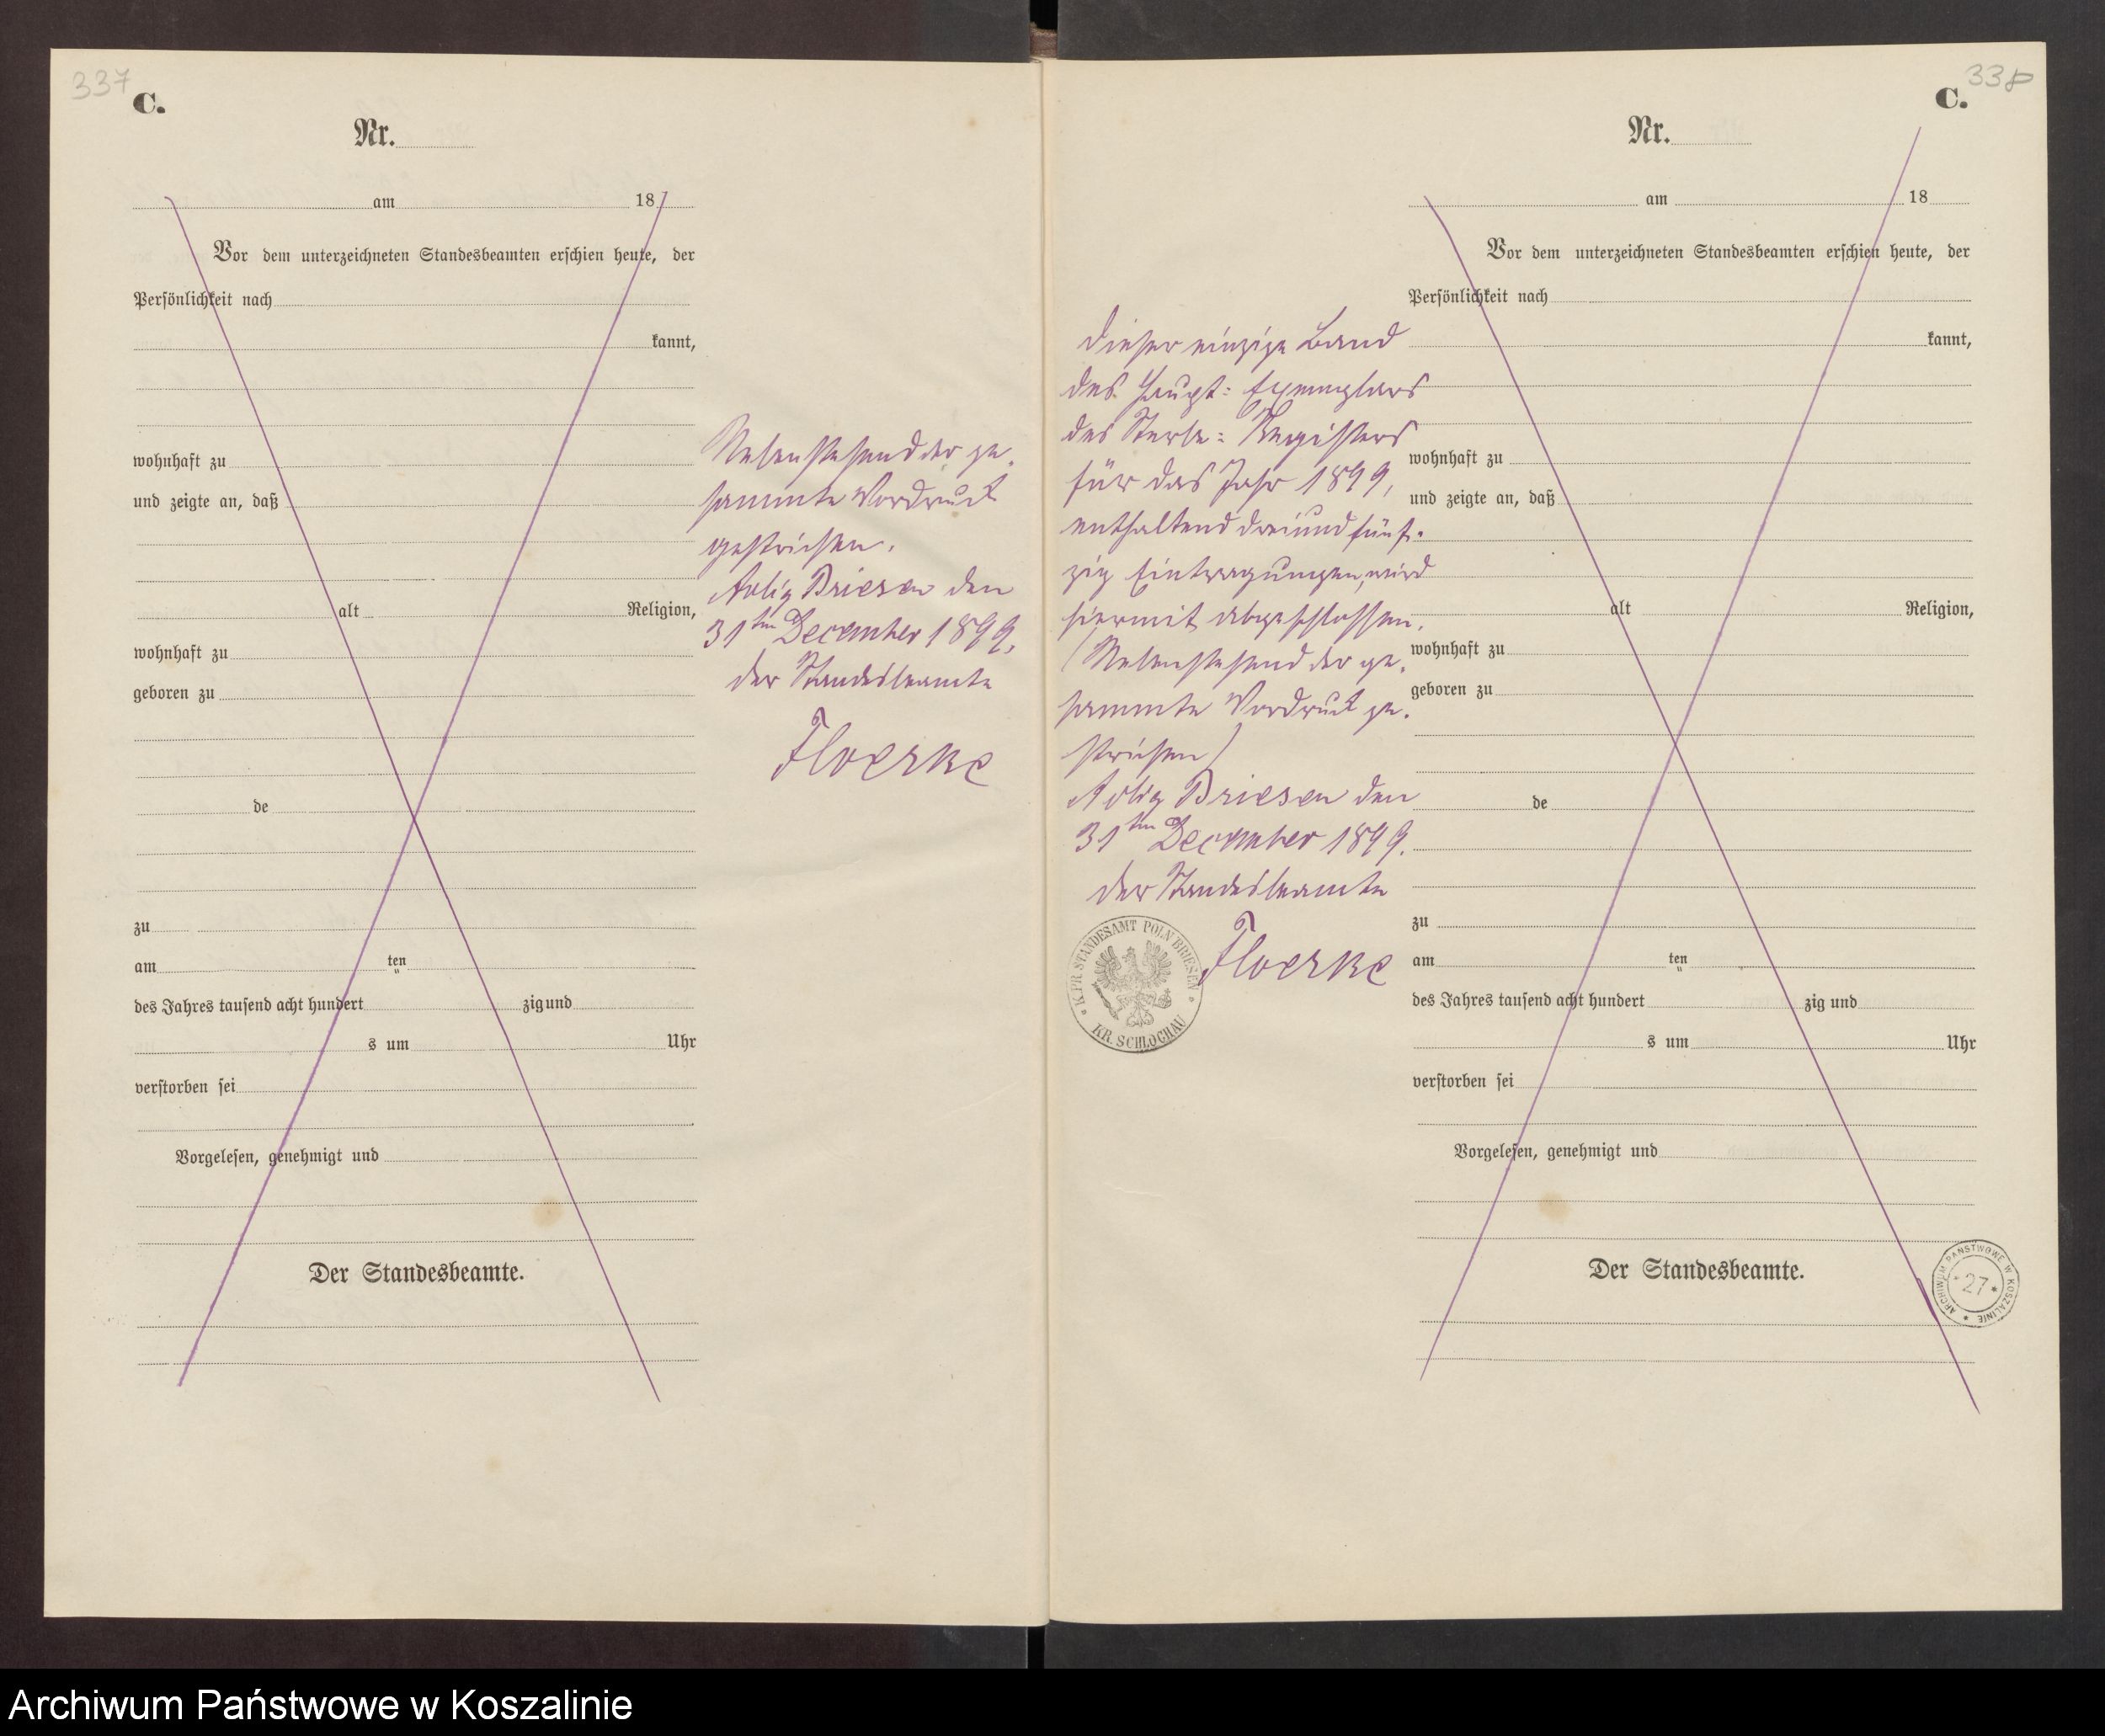 337
C.
Nr.
am 18
Vor dem unterzeichneten Standesbeamten erschien heute, der
Persönlichkeit nach
kannt,
wohnhaft zu
und zeigte an, daß
alt Religion,
wohnhaft zu
geboren zu
de
zu
am ten
des Jahres tausend acht hundert zig und
s um Uhr
verstorben sei
Vorgelesen, genehmigt und
Der Standesbeamte.
Nebenstehend der ge-
sammte Vordruck
gestrichen.
Adlig Briesen den
31ten December 1899.
der Standesbeamte
Floerke
338
C.
Nr.
am 18
Vor dem unterzeichneten Standesbeamten erschien heute, der
Persönlichkeit nach
kannt,
wohnhaft zu
und zeigte an, daß
alt Religion,
wohnhaft zu
geboren zu
de
zu
am ten
des Jahres tausend acht hundert zig und
s um Uhr
verstorben sei
Vorgelesen, genehmigt und
Der Standesbeamte.
Dieser einzige Band
des Haupt: Exemplars
des Sterbe: Registers
für das Jahr 1899,
enthaltend dreiundfünf-
zig Eintragungen, wird
hiermit abgeschlossen.
(Nebenstehend der ge-
sammte Vordruck ge-
strichen)
Adlig Briesen den
31ten December 1899.
der Standesbeamte
Floerke
K. PR. STANDESAMT POLN BRIESEN
KR. SCHLOCHAU
ARCHIWUM PAŃSTWOWE W KOSZALINIE
* 27 *
Archiwum Państwowe w Koszalinie